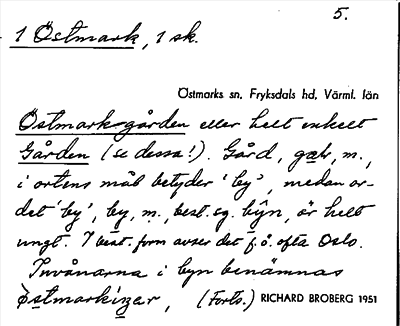 5.
1 Östmark, 1 sk.
Östmarks sn. Fryksdals hd, Värml. län
Östmark-gården eller helt enkelt
Gården (se dessa!). Gård, gaɫv, m.,
i ortens mål betyder 'by', medan or-
det 'by', by, m., best. sg. bȳn, är helt
ungt. I best. form avser det f.ö. ofta Oslo.
Invånarna i byn benämnas
østmark'iŋar, (Forts.) RICHARD BROBERG 1951